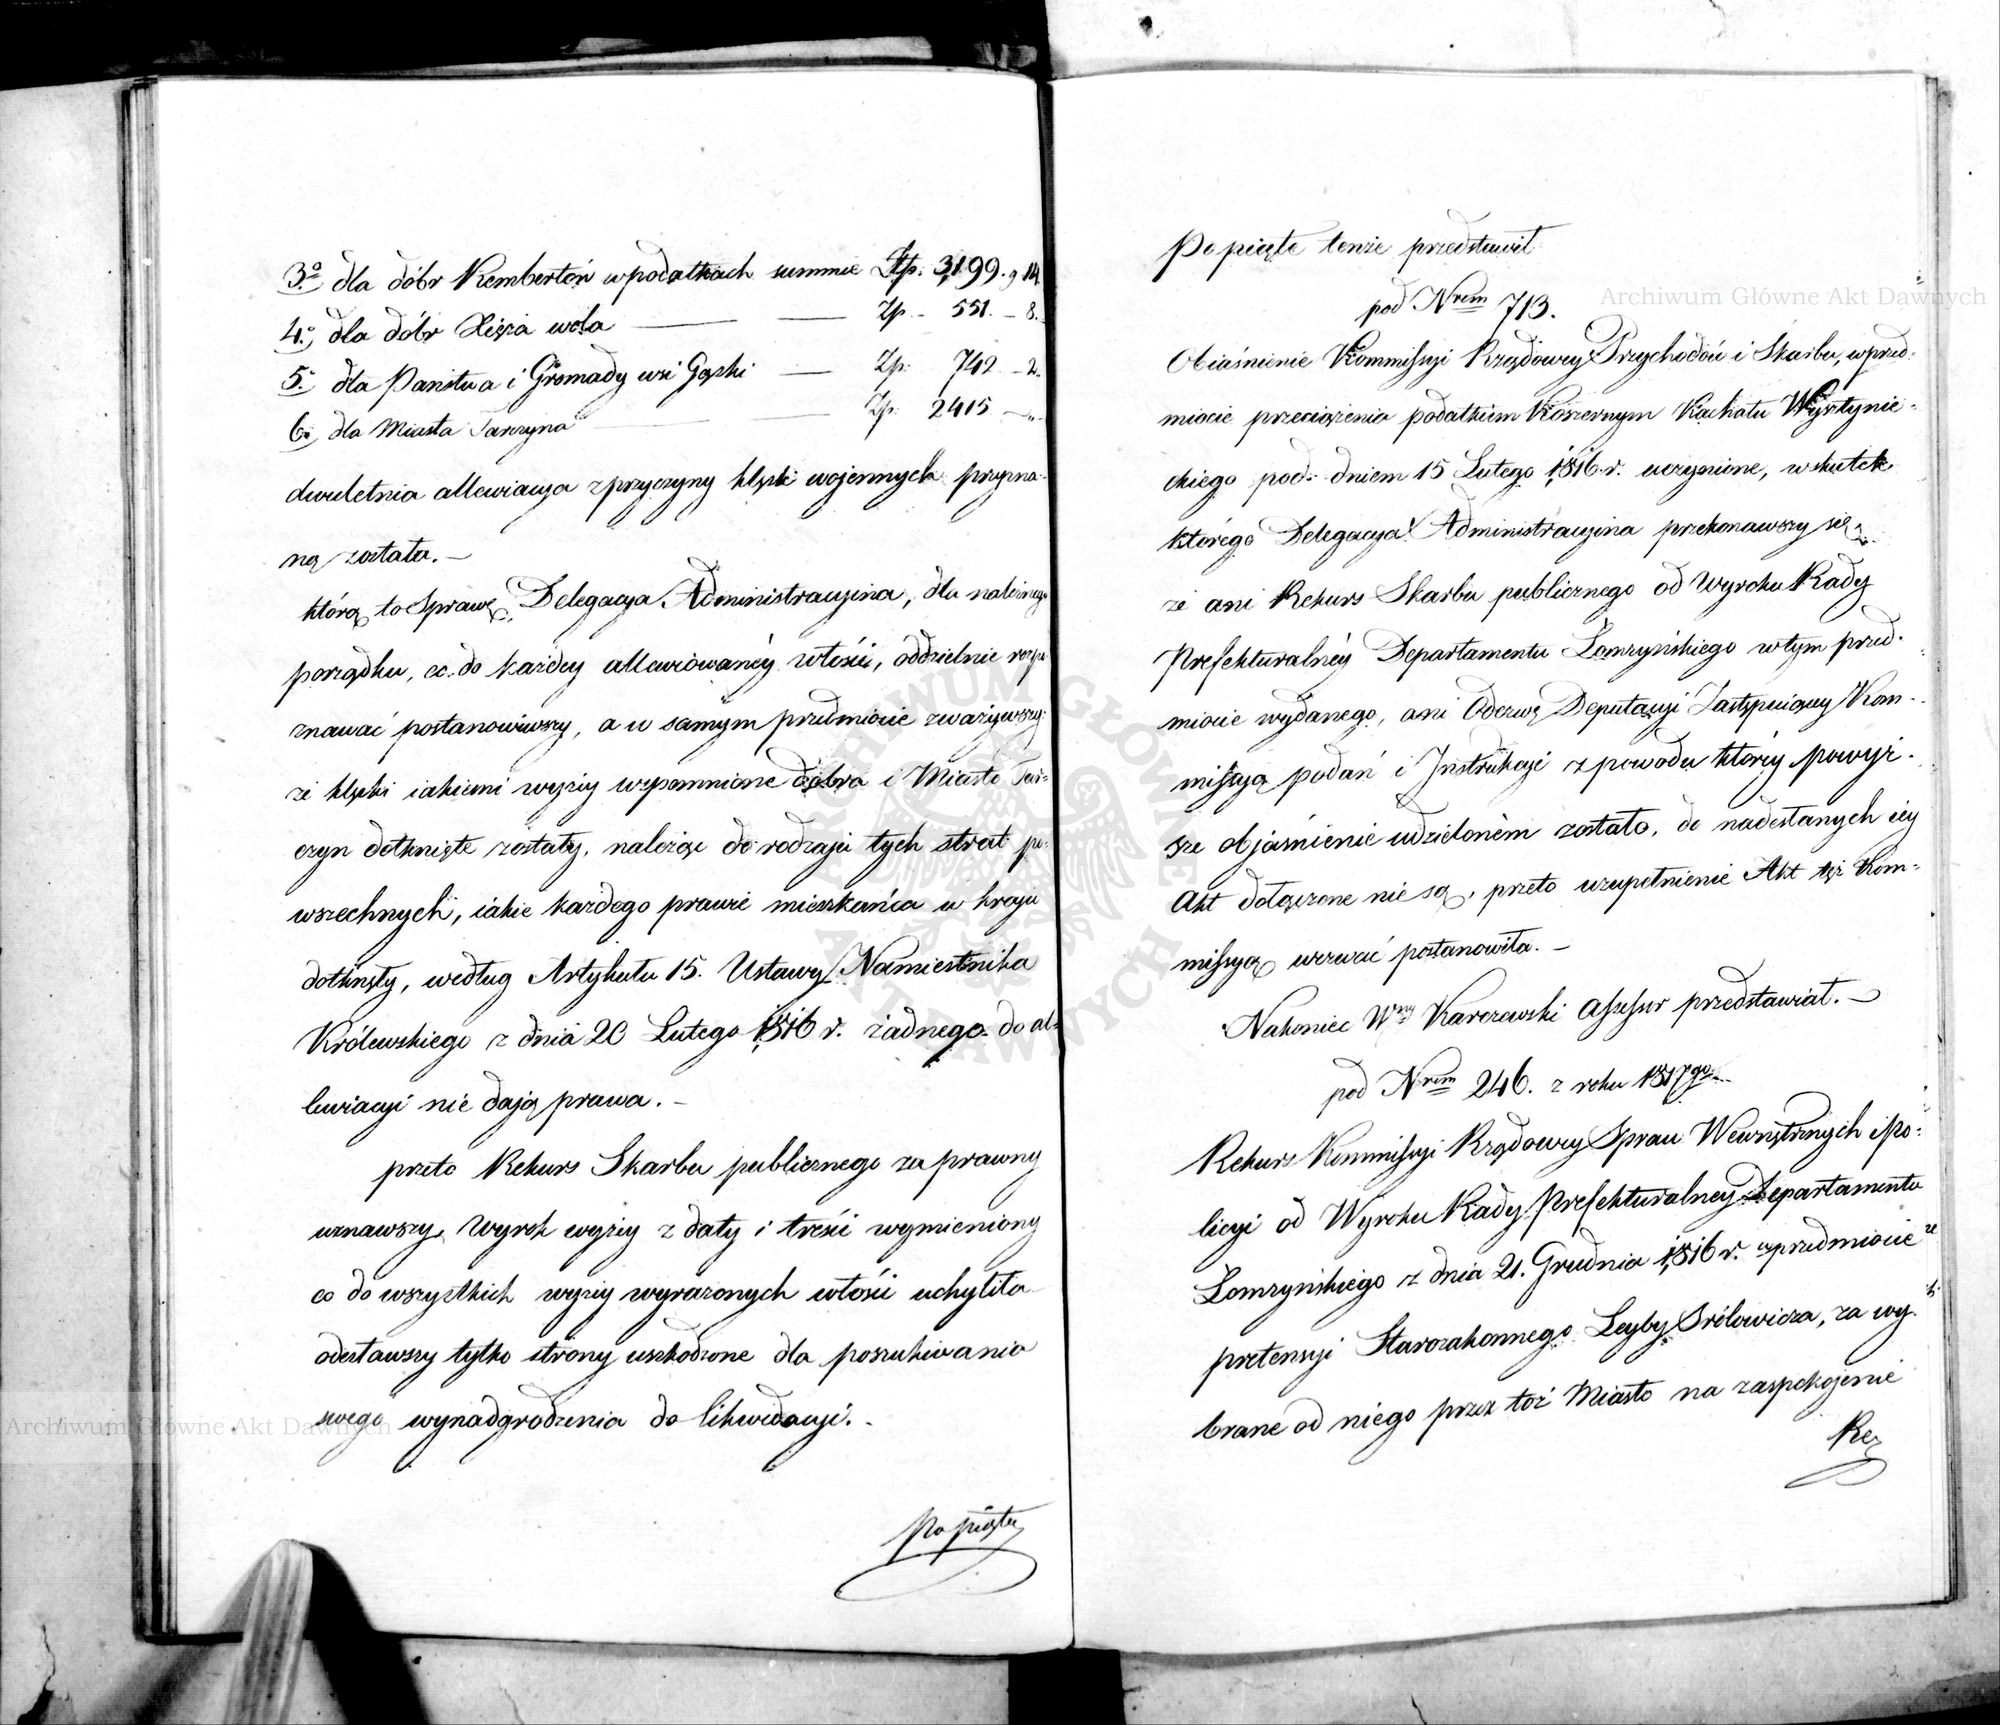 3º dla dóbr Rembertoń w podatkach summie Złp. 3,199. g 14.
4º dla dóbr Xięża wola — — Zp. - 551. - 8.
5º dla Państwa i Gromady wsi Gąski — Zp. 742. - 2.
6º dla Miasta Tarczyna — Zp. 2415 - „.
dwuletnia allewiacya z przyczyny klęsk wojennych przyzna-
ną została. —
którą to Sprawę Delegacya Administracyina, dla należnego
porządku, co do każdey allewiowanéy włości, oddzielnie rozpo-
znawać postanowiwszy, a w samym przedmiocie zważywszy:
że klęski iakiemi wyżéy wspomnione dobra i Miasto Tar-
czyn dotknięte zostały, należąc do rodzaju tych strat po-
wszechnych, iakie każdego prawie mieszkańca w kraju
dotknęły, według Artykułu 15. Ustawy Namiestnika
Królewskiego z dnia 20 Lutego 1816 r. żadnego do al-
lewiacyi nie dają prawa. —
przeto Rekurs Skarbu publicznego za prawny
uznawszy, Wyrok wyżéy z daty i treści wymieniony
co do wszystkich wyżéy wyrażonych włości uchyliła
odesławszy tylko strony uszkodzone dla poszukiwania
swego wynadgrodzenia do likwidacyi. —
Po piąte
Po piąte tenże przedstawił
pod Nrem 713.
Obiaśnienie Kommissyi Rządowey Przychodów i Skarbu, w przed-
miocie przeciążenia podatkiem Koszernym Kachału Wysztynie-
ckiego pod dniem 15 Lutego 1816. r. uczynione, w skutek
którego Delegacya Administracyina przekonawszy się
że ani Rekurs Skarbu publicznego od Wyroku Rady
Prefekturalnéy Departamentu Łomżyńskiego w tym przed-
miocie wydanego, ani Odezwę Deputacyi Zastępuiącey Kom-
missyą podań i Instrukcyi z powodu któréy powyż-
sze objaśnienie udzielonem zostało, do nadesłanych iey
Akt dołączone nie są, przeto uzupełnienie Akt tęż Kom-
missyą wezwać postanowiła. —
Nakoniec Wny Karczewski Assessor przedstawiał. —
pod Nrem 246. z roku 1817go
Rekurs Kommissyi Rządowey Spraw Wewnętrznych i Po-
licyi od Wyroku Rady Prefekturalney Departamentu
Łomżyńskiego z dnia 21. Grudnia 1816 r. w przedmiocie
pretensyi Starozakonnego Leyby Srólowicza, za wy-
brane od niego przez toż Miasto na zaspokojenie
Re